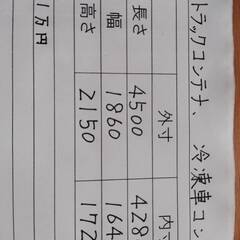 トラックコンテナ、冷凍車コン
外寸 内寸
長さ 4500 428
幅 1860 164
高さ 2150 172
1万円